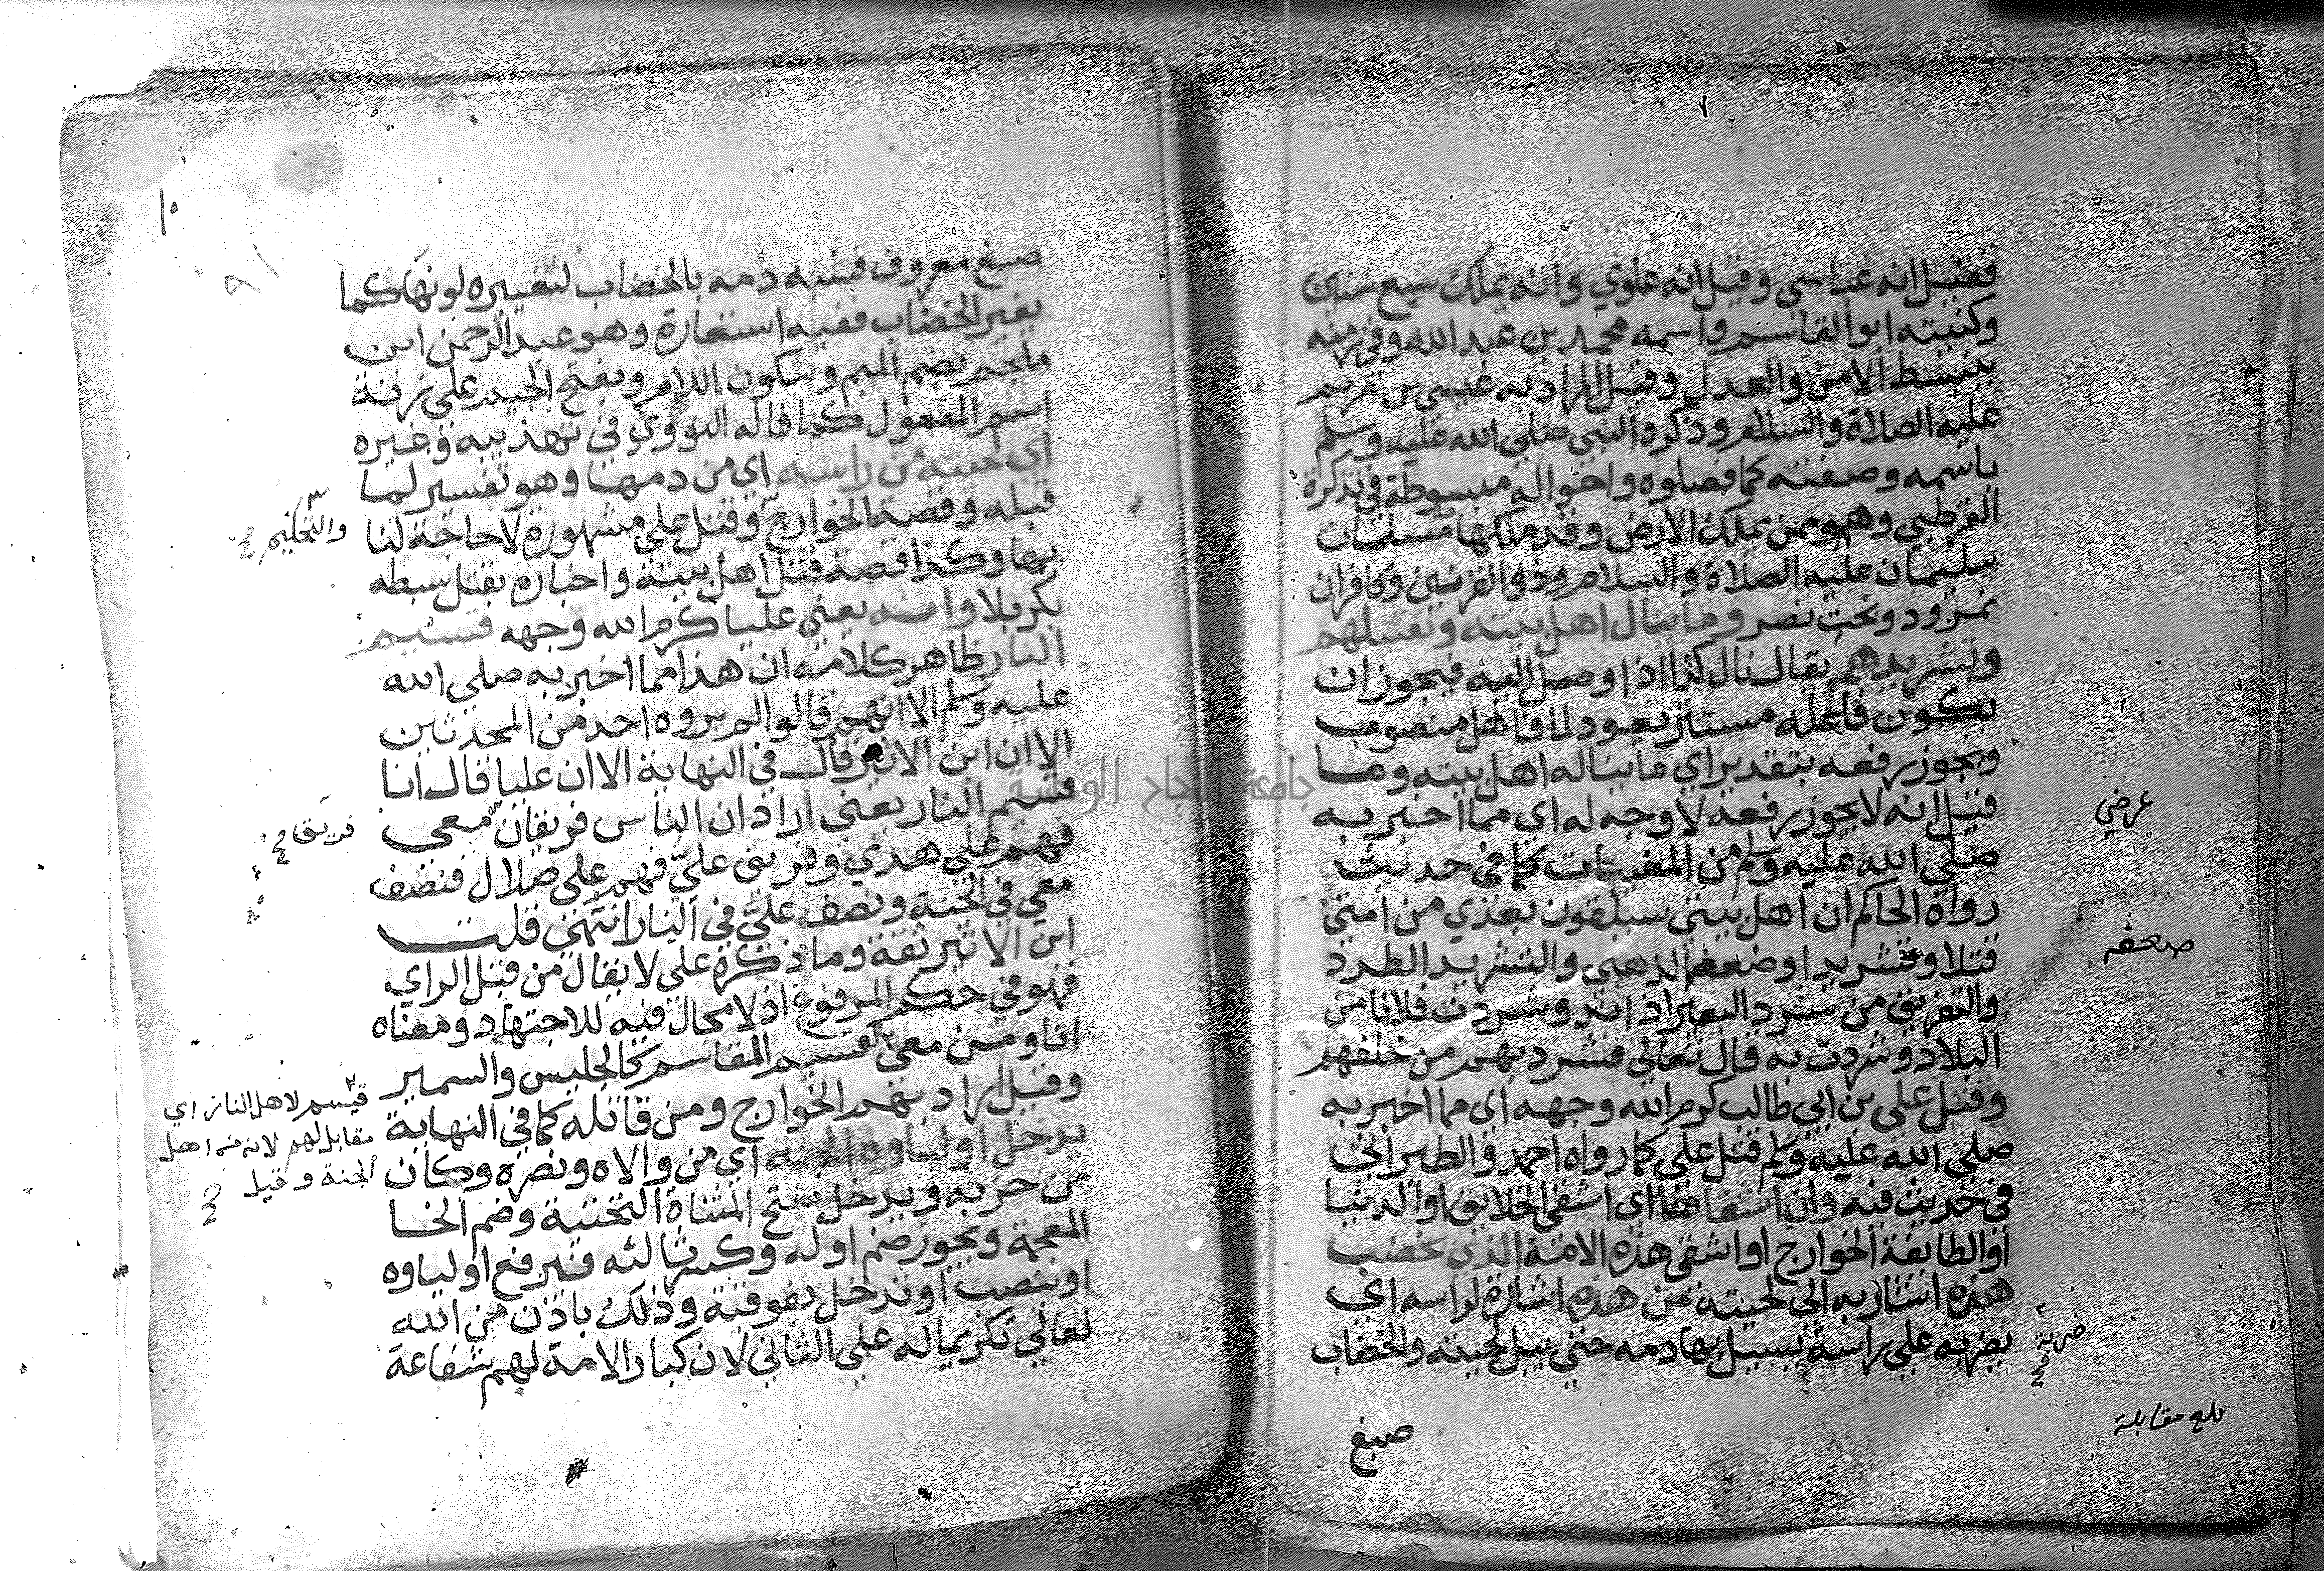 فقيل انه عباسي وقيل انه علوي وانه يملك سبع سنين
وكنيته ابو القاسم واسمه محمد بن عبد الله وفي زمنه
ينبسط الامن والعدل وقيل المراد به عيسى بن مريم
عليه الصلاة والسلام وذكره النبي صلي الله عليه وسلم
باسمه وصفته كما فصلوه واحواله مبسوطة في تذكرة
القرطبي وهو ممن يملك الارض وقد ملكها مسلمان
سليمان عليه الصلاة والسلام وذو القرنين وكافران
نمرود وبخت نصر وما ينال اهل بيته وتقتيلهم
وتشريدهم يقال نال كذا اذا وصل اليه فيجوز ان
يكون فاعله مستتر يعود لما فاهل منصوب
ويجوز رفعه بتقدير اي ما يناله اهل بيته وما
قيل انه لا يجوز رفعه لا وجه له اي مما اخبر به
عرضي
صلي الله عليه وسلم من المغيبات كما في حديث
رواه الحاكم ان اهل بيتي سيلقون بعدي من امتي
قتلا وتشريدا وضعفه الذهبي والتشريد الطرد
صعفه
والتفريق من شرد البعير اذا ند وشردت فلانا من
البلاد وشردت به قال تعالي فشرد بهم من خلفهم
وقتل علي بن ابي طالب كرم الله وجهه اي مما اخبر به
صلي الله عليه وسلم قتل علي كما رواه احمد والطبراني
في حديث فيه وان اشقاها اي اشقي الخلايق او الدنيا
او الطايفة الخوارج او اشقي هذه الامة الذي يخضب
هذه اشار به الي لحيته من هذه اشارة لراسه اي
يضربه علي راسه يسيل بها دمه حتي يبل لحيته والخضاب
ضربة
بلغ مقابلة
صبغ
١٠
صبغ معروف فشبه دمه بالخضاب لتغييره لونها كما
يغير الخضاب ففيه استعارة وهو عبد الرحمن ابن
ملجم بضم الميم وسكون اللام وبفتح الجيم علي زنة
اسم المفعول كما قاله النووي في تهذيبه وغيره
اي لحيته من راسه اي من دمها وهو تفسير لما
قبله وقصة الخوارج وقتل علي مشهورة لا حاجة لنا
والتحكيم
بها وكذا قصة قتل اهل بيته واخباره بقتل سبطه
بكربلا وانه يعني عليا كرم الله وجهه قسيم
النار ظاهر كلامه ان هذا مما اخبر به صلي الله
عليه وسلم الا انهم قالوا لم يروه احد من المحدثين
الا ان ابن الاثير قال في النهاية الا ان عليا قال انا
قسيم النار يعني اراد ان الناس فريقان معي
فريق
فهم علي هدي وفريق عليّ فهم علي ضلال فنصف
معي في الجنة ونصف عليّ في النار انتهي قلت
ابن الاثير ثقة وما ذكره علي لا يقال من قبل الراي
فهو في حكم المرفوع اذ لا مجال فيه للاجتهاد ومعناه
انا ومن معي قسيم المقاسم كالجليس والسمير
قسيم لاهل النار اي
مقابل لهم لانه من اهل
الجنة وقيل
وقيل اراد بهم الخوارج ومن قاتله كما في النهاية
يدخل اولياوه الجنة اي من والاه ونصره وكان
من حزبه ويدخل بفتح المثناة التحتية وضم الخا
المعجمة ويجوز ضم اوله وكسر ثالثه فيرفع اولياوه
او ينصب او تدخل بفوقية وذلك باذن من الله
تعالي تكريما له علي الثاني لان كبار الامة لهم شفاعة
جامعة النجاح الوطنية